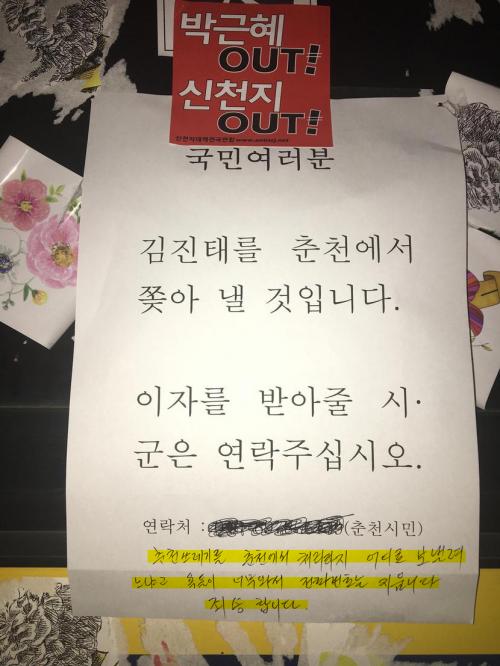 박근혜
OUT!
신천지
OUT!
신천지대책전국연합 www.antiscj.net
국민여러분
김진태를 춘천에서
쫓아 낼 것입니다.
이자를 받아줄 시·
군은 연락주십시오.
연락처 : (춘천시민)
춘천쓰레기를 춘천에서 처리하지 어디로 보낼려
느냐고 욕문이 너무와서 전화번호는 지웁니다
죄송합니다